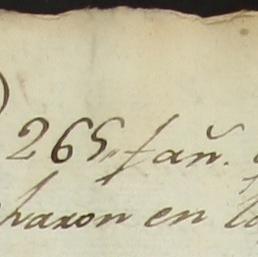 265, fañ.
haxon en lo